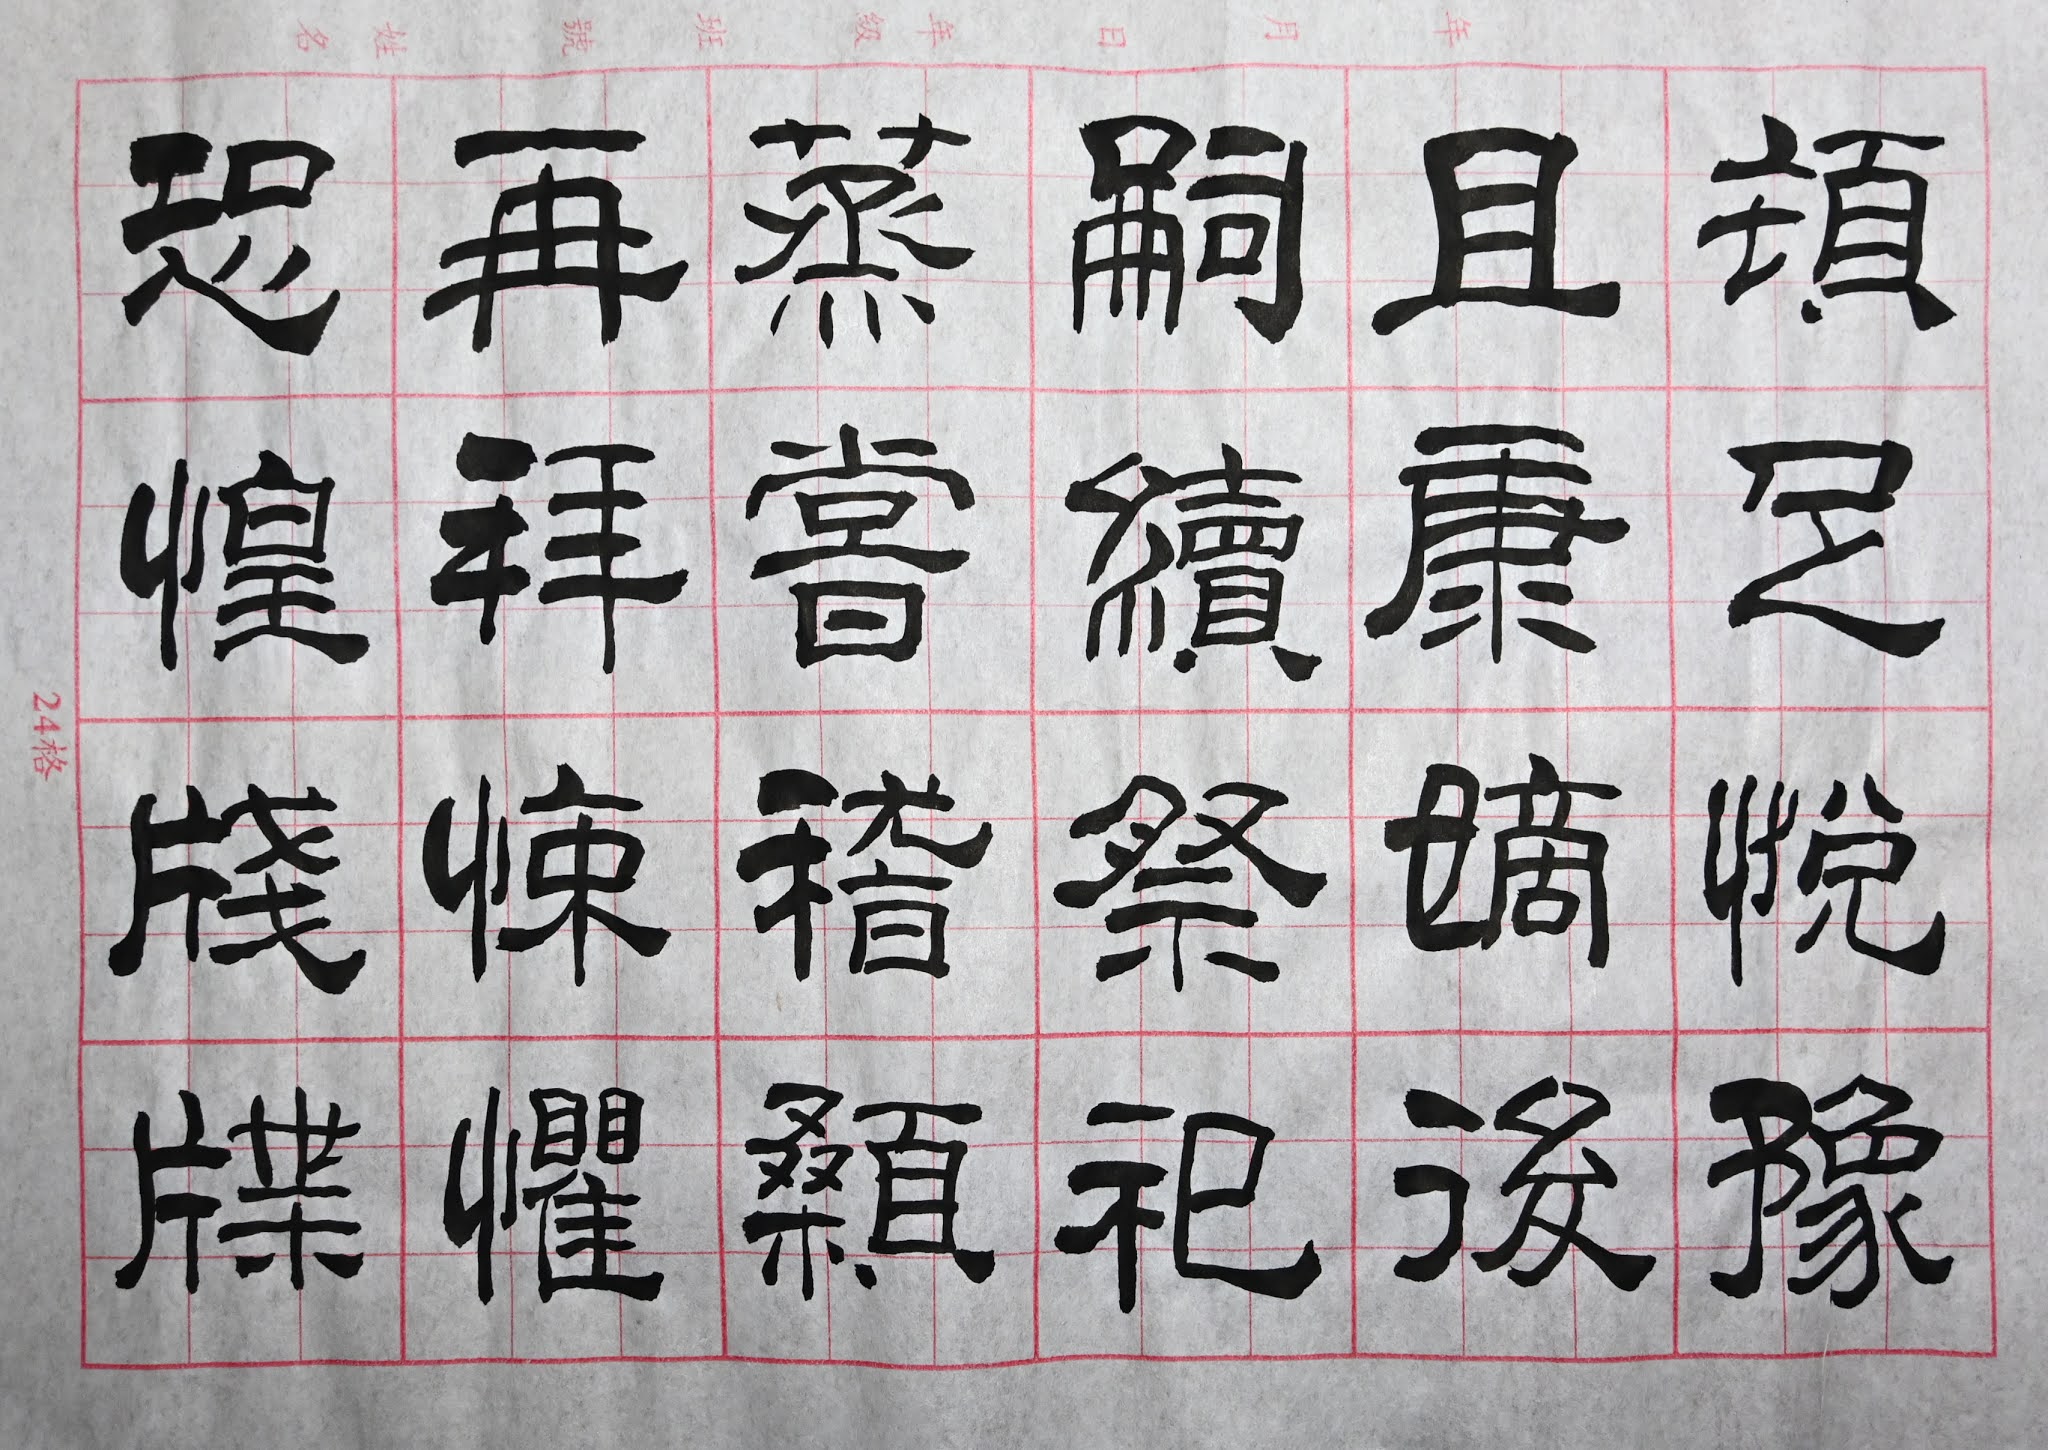 頓足悅豫
且康嫡後
嗣續祭祀
蒸嘗稽顙
再拜悚懼
恐惶牋牒
年 月 日 年級 班 號 姓名
24格